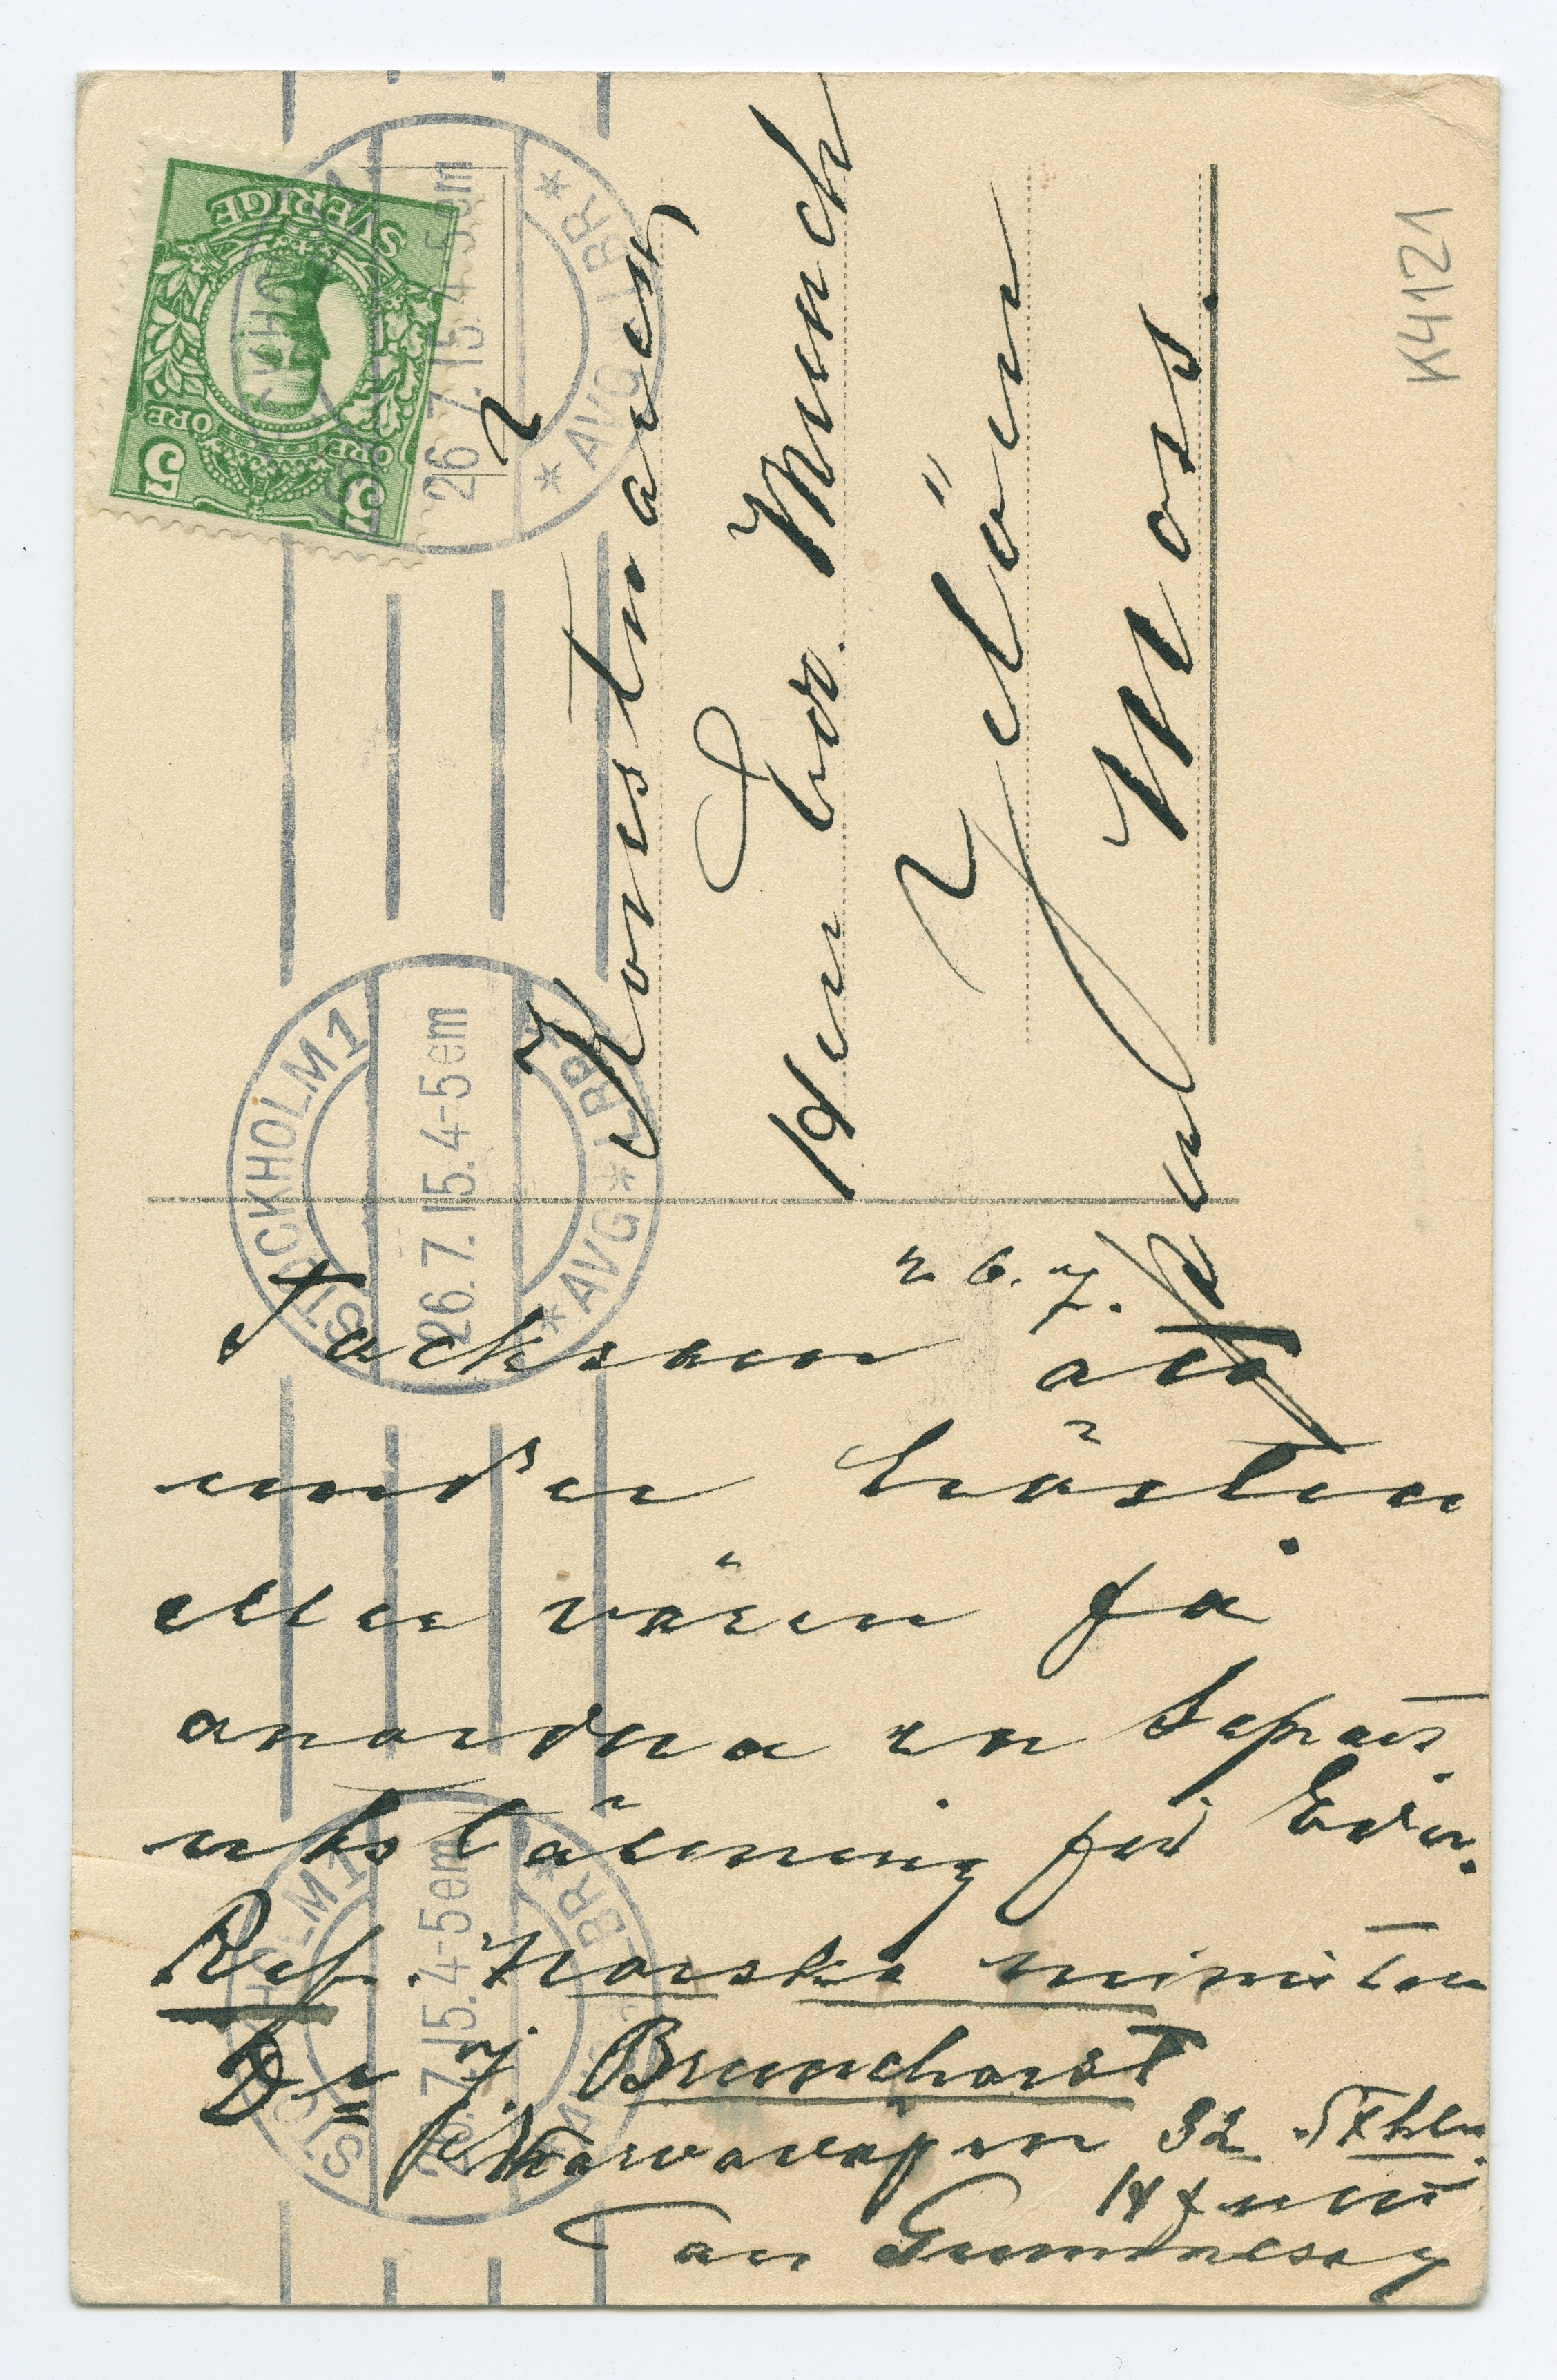 SVERIGE
5 ÖRE ÖRE 5
STOCKHOLM 1
26.7.15.4-5em
*AVG*LBR*
STOCKHOLM 1
26.7.15.4-5em
*AVG*LBR*
STOCKHOLM 1
26.7.15.4-5em
*AVG*LBR*
Konstnären
Herr Edv. Munch
Jelöen
Mos.
K4121
26.7.
Tacksam att
under hösten
eller våren få
anordna en Separat
utställning för Eder.
Ref. Norska ministern
Dr J. Brunchorst
Narvavägen 32 Sthlm.
Gummeson